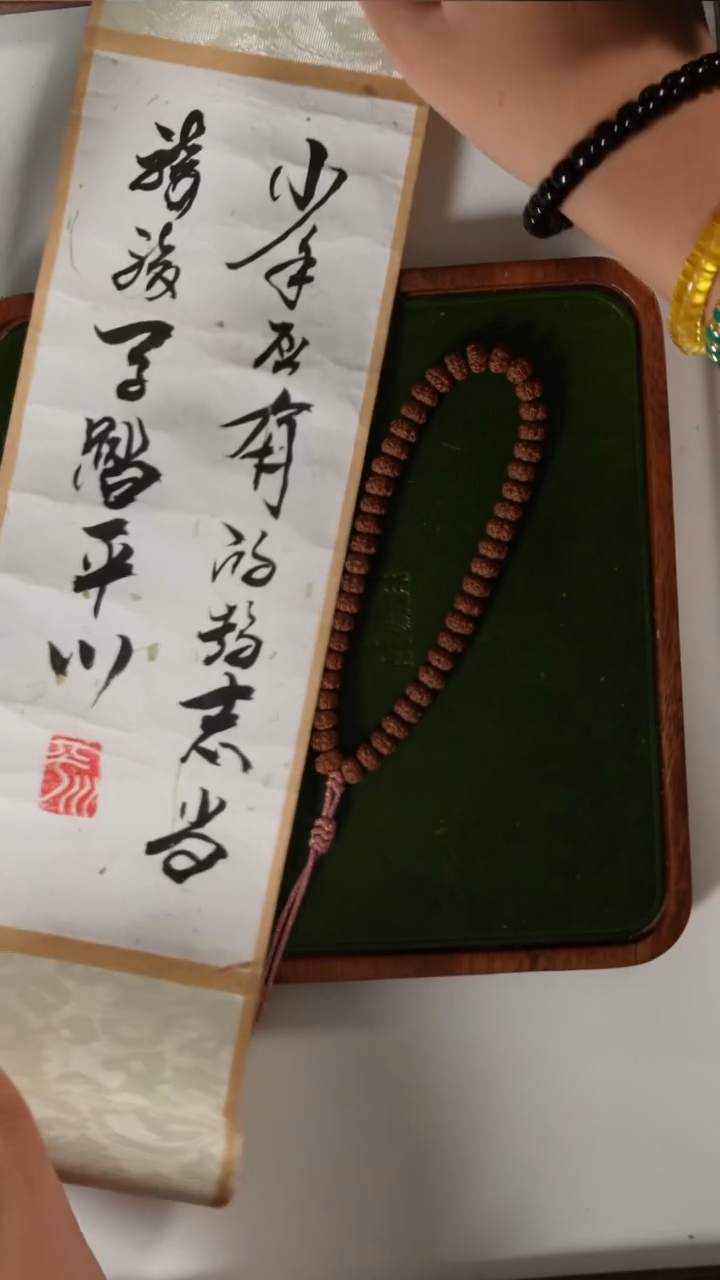 少年应有鸿鹄志当
骑骏马踏平川
平川